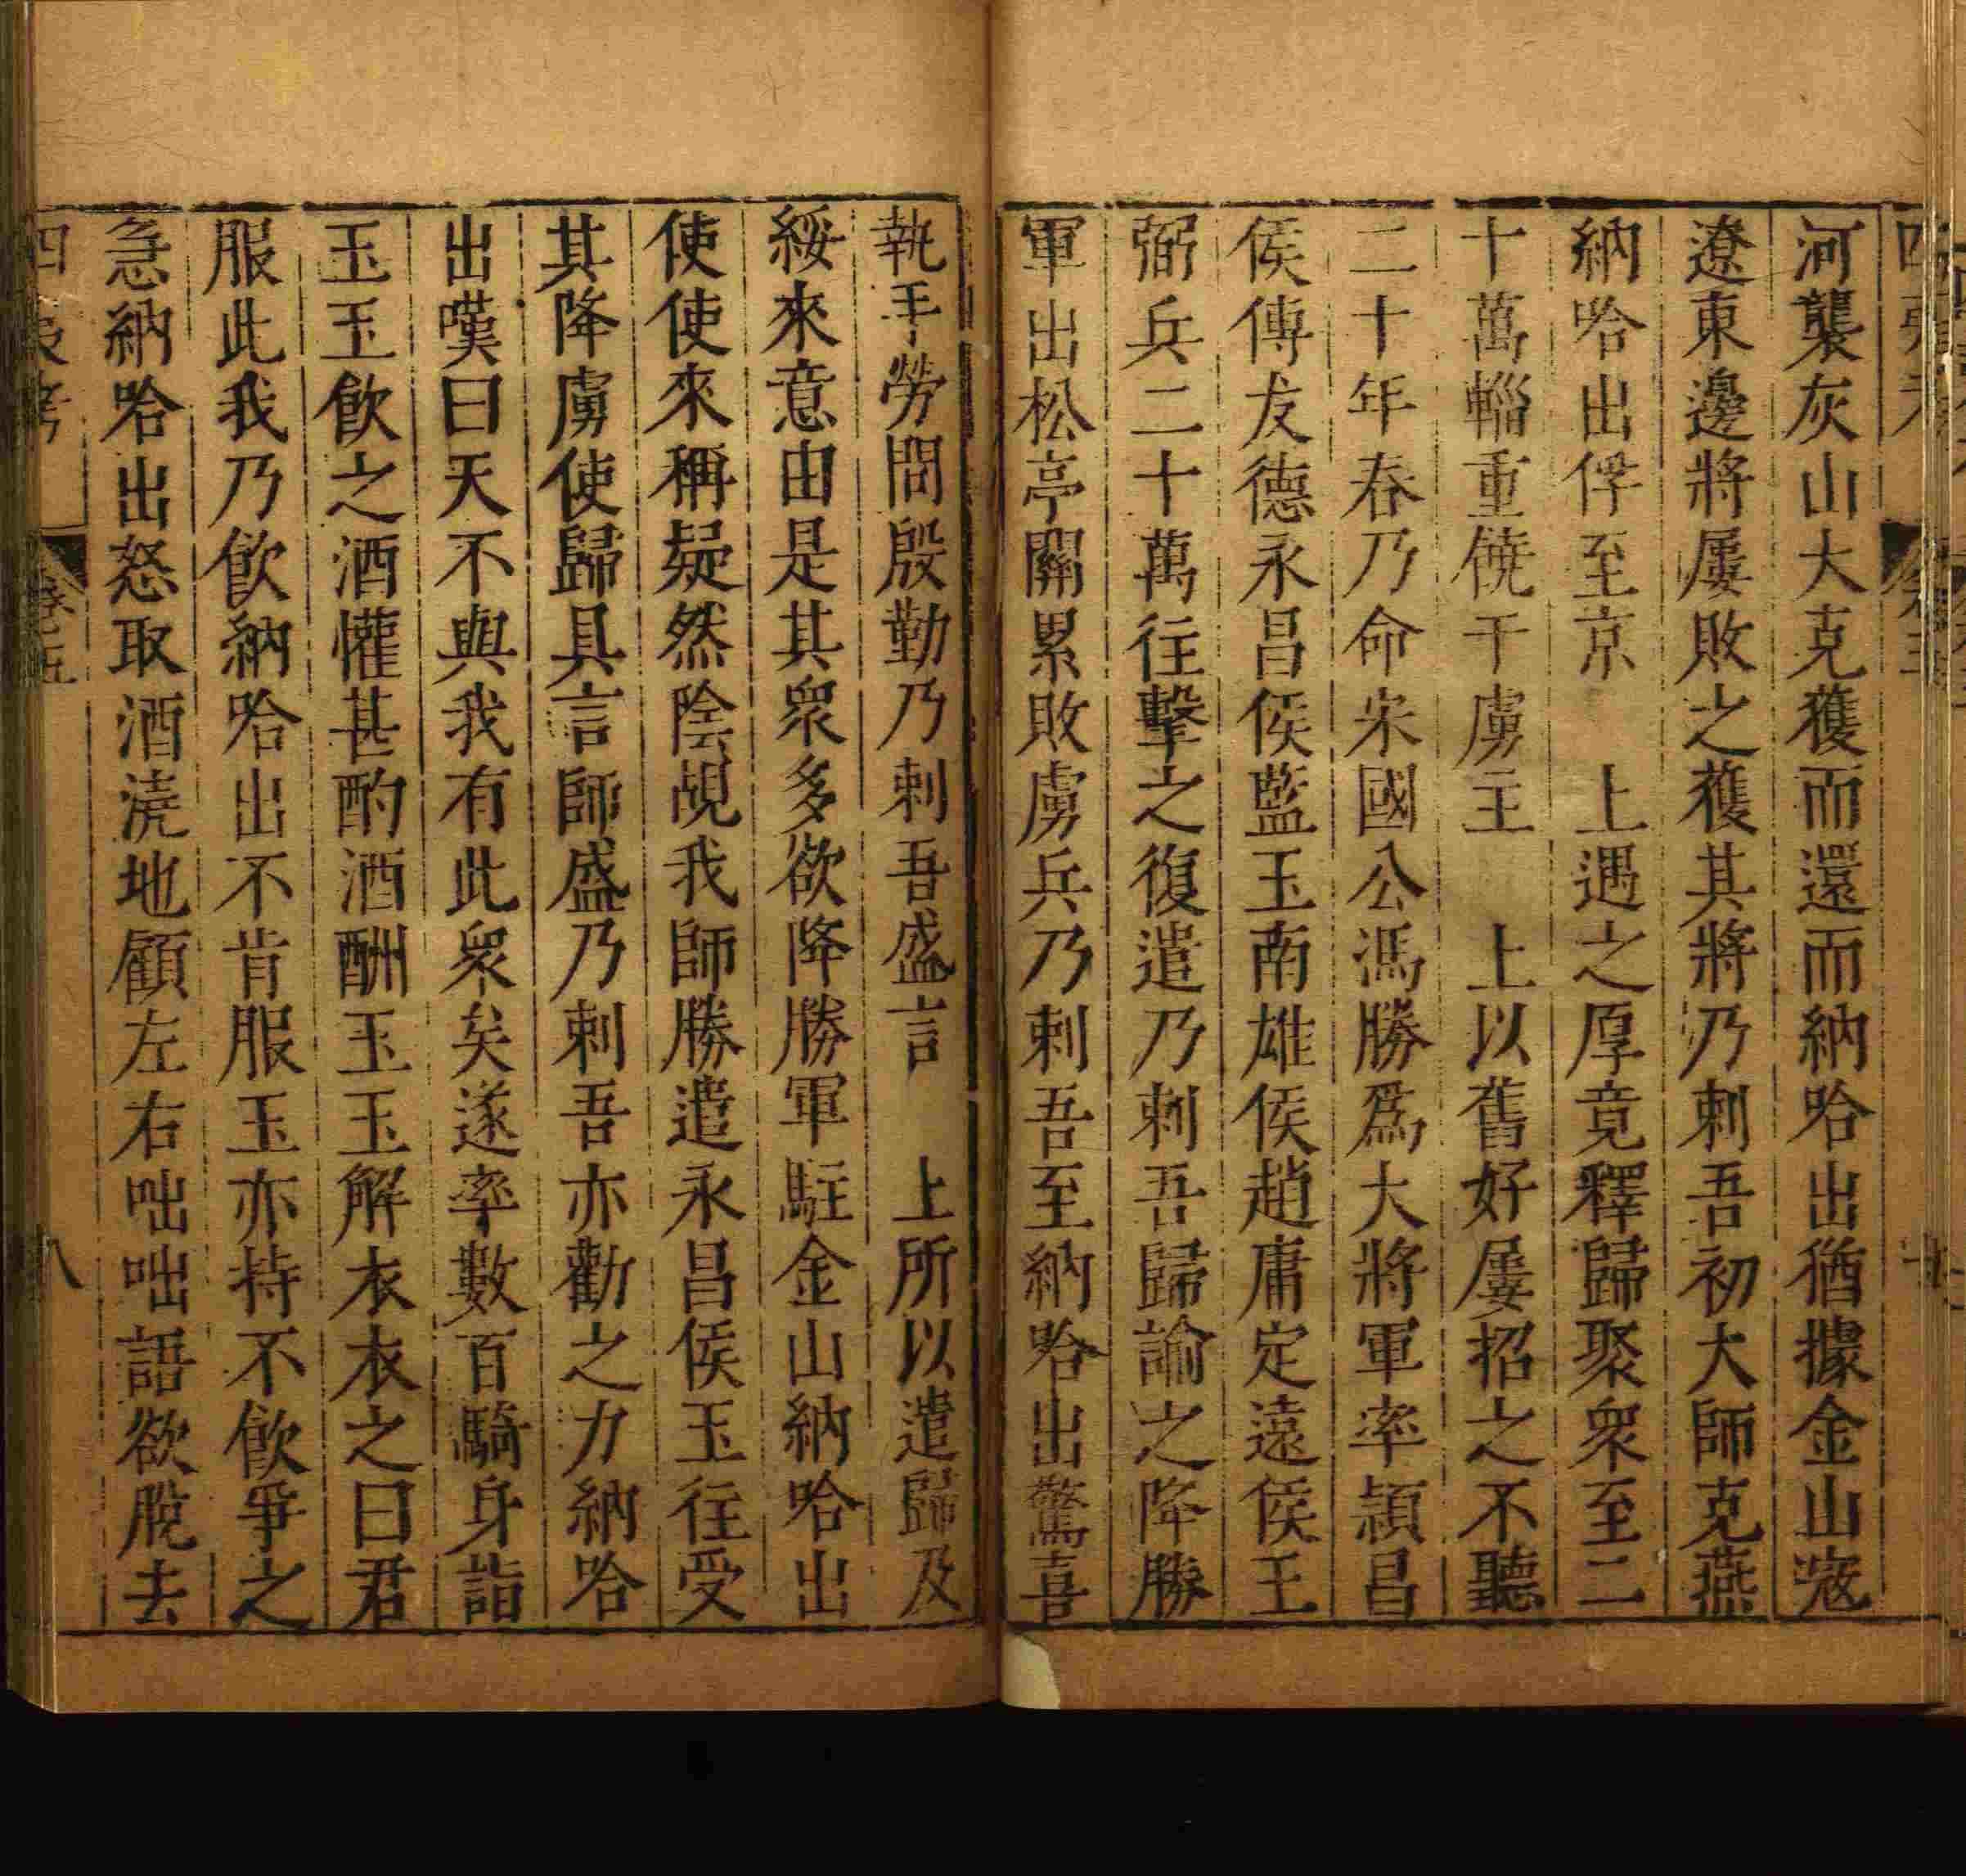 河襲灰山大克獲而還而納哈出猶據金山寇
遼東邊將屢敗之獲其將乃剌吾初大師克燕
納哈出俘至京　上遇之厚竟釋歸聚衆至二
十萬輜重饒于虜主　上以舊好屢招之不聽
二十年春乃命宋國公馮勝爲大將軍率頴昌
侯傳友德永昌侯藍玉南雄侯趙庸定遠侯王
弼兵二十萬往擊之復遣乃剌吾歸諭之降勝
軍出松亭關累敗虜兵乃剌吾至納哈出驚喜
執手勞問殷勤乃剌吾盛言　上所以遣歸及
綏來意由是其衆多欲降勝軍駐金山納哈出
使使來稱疑然陰覘我師勝遣永昌侯玉往受
其降虜使歸具言師盛乃剌吾亦勸之力納哈
出嘆曰天不與我有此衆矣遂率數百騎身詣
玉玉飲之酒懽甚酌酒酬玉玉解衣衣之曰君
服此我乃飲納哈出不肯服玉亦持不飲爭之
急納哈出怒取酒澆地顧左右咄咄語欲脫去
四夷考
卷五
八